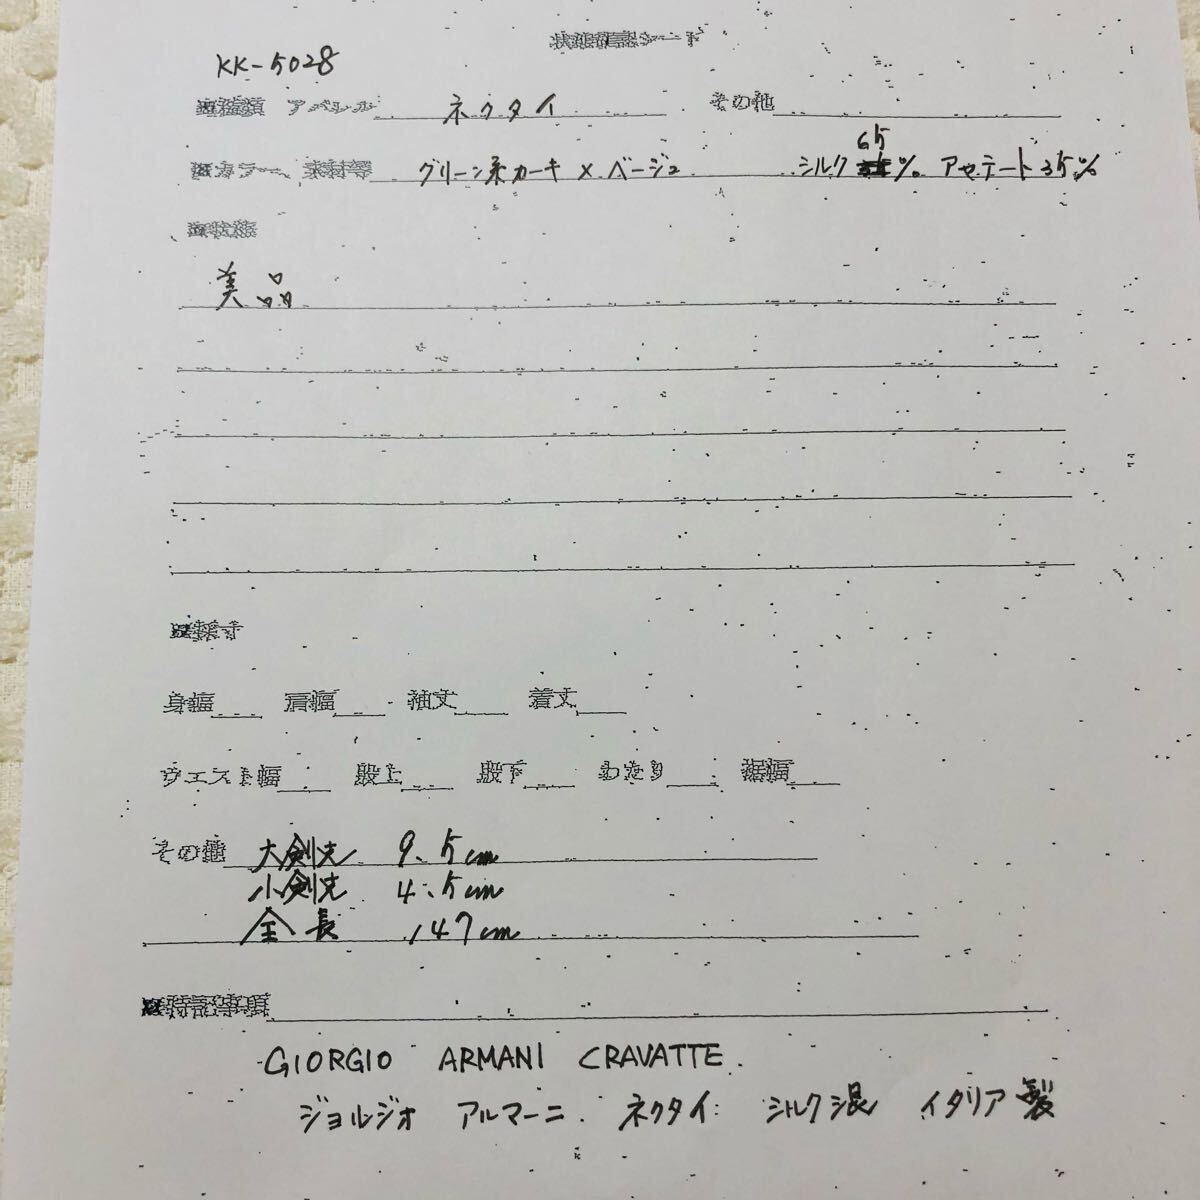 状態確認シート
KK-5028
■種類 アパレル ネクタイ その他
65
■カラー、素材等 グリーン系カーキ × ベージュ シルク % アセテート35%
■状態
美品
■採寸
身幅 肩幅 袖丈 着丈
ウエスト幅 股上 股下 わたり 裾幅
その他 大剣先 9.5cm
小剣先 4.5cm
全長 147cm
■特記事項
GIORGIO ARMANI CRAVATTE.
ジョルジオ アルマーニ. ネクタイ: シルク混 イタリア製